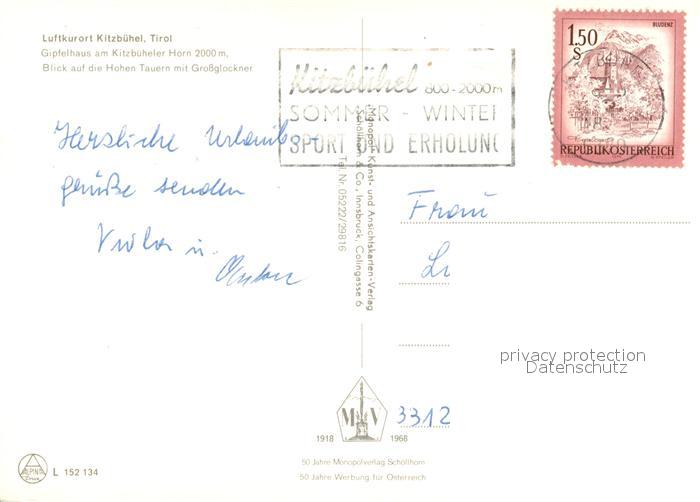 Luftkurort Kitzbühel, Tirol
Gipfelhaus am Kitzbüheler Horn 2000 m,
Blick auf die Hohen Tauern mit Großglockner.
Kitzbühel 800-2000m
SOMMER - WINTER
SPORT UND ERHOLUNG
1.50
S
BLUDENZ
REPUBLIK ÖSTERREICH
Herzliche Urlaubs
grüße senden
u.
Monopol Kunst- und Ansichtskarten-Verlag
Schöllhorn & Co., Innsbruck, Colingasse 6
Tel. Nr. 05222/29816
Frau
Li
privacy protection
Datenschutz
3312
M V
1918 1968
50 Jahre Monopolverlag Schöllhorn
50 Jahre Werbung für Österreich
ALPINA
L 152 134